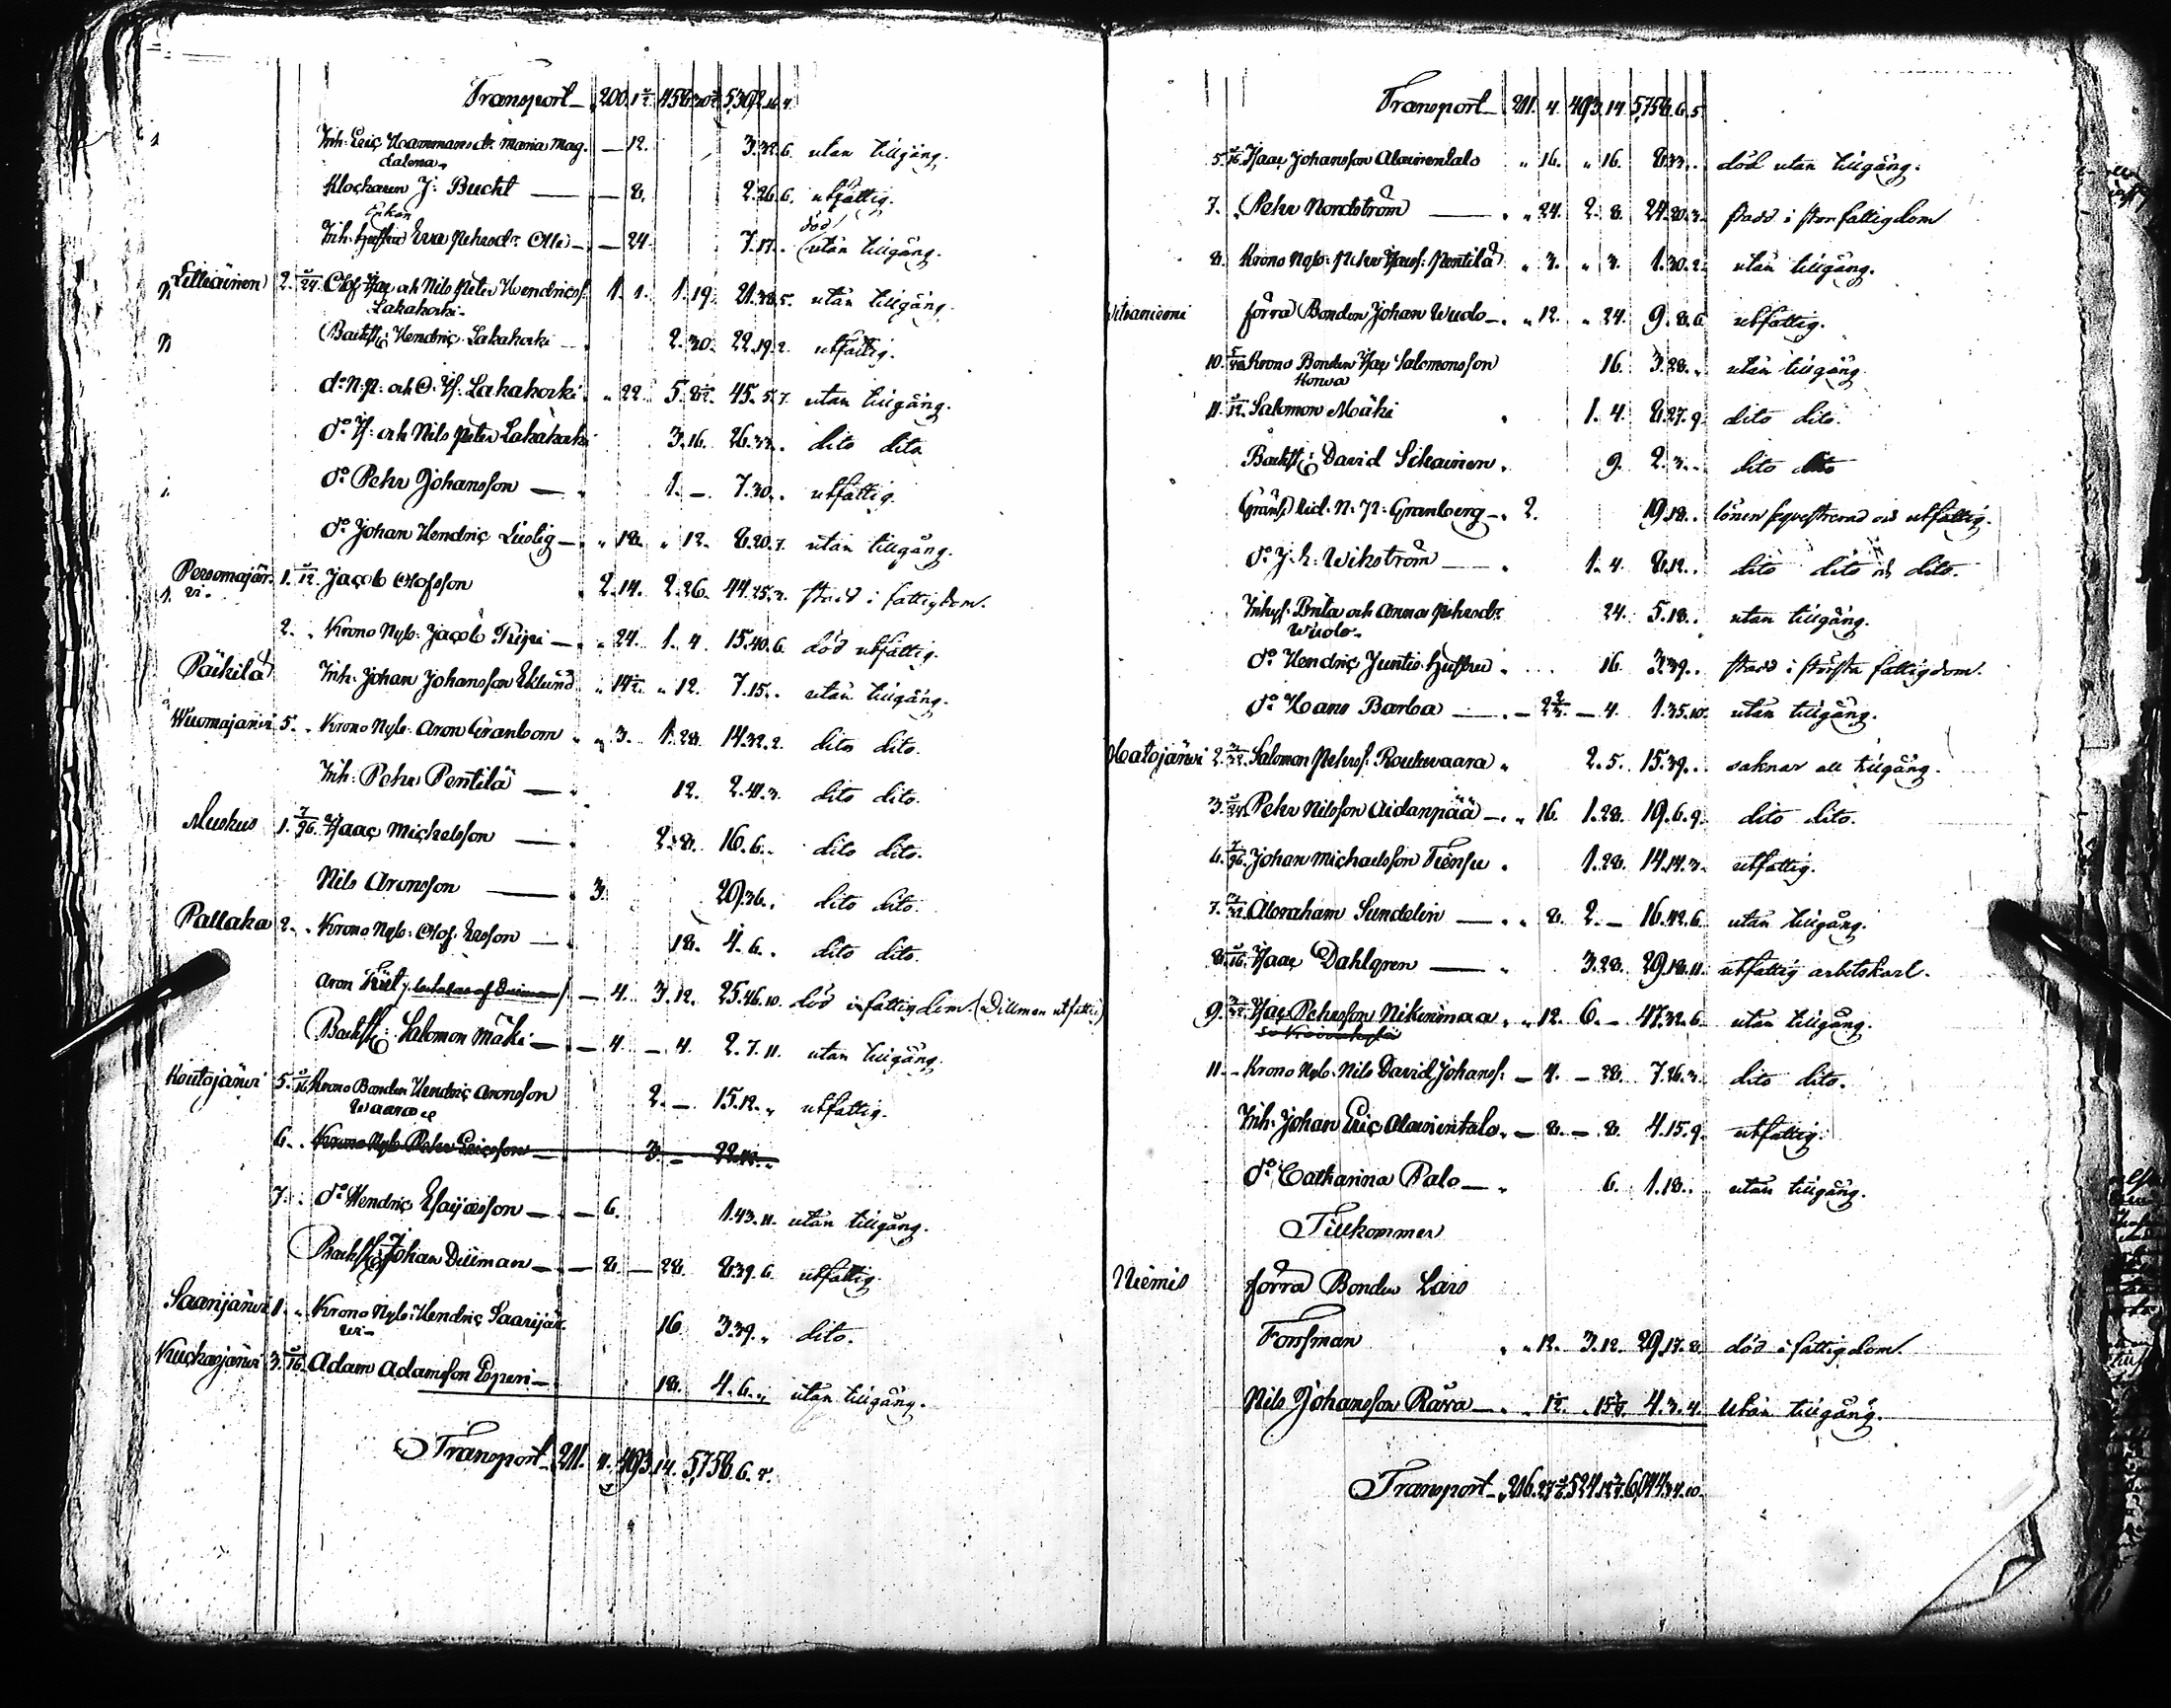 Transport 200. 1½ 458. 5,367. 2.
Inh: Eric Hoarmmansdr. Maria Mag. — 12. 3.32.6. utan tillgång.
dalena
Klockaren J: Bucht — 8. 2.26.6. utfattig.
Enkan död
Inh: Hustru Eva Pehrsdr. Olli — 24. 7.17. utan tillgång.
2. Olof Isac och Nils Peter Hendricss. 1. 1. 1.19. 21.38.5. utan tillgång.
Lakahorki
Backst: Hendric Lakahorki 2.30. 22.19.2. utfattig.
do N.P. och O. Is: Lakahorki 22. 5. 45.5.7. utan tillgång.
do Is: och Nils Peter Lakahorki 3.16. 26.33. dito dito
do Pehr Johansson — 1. — 7.30. utfattig.
do Johan Hendric Luslig — 18. 12. 8.20.7. utan tillgång.
Persomajär= 1. Jacob Olofsson 2.14. 2.26. 44.25.3. stadd i fattigdom.
vi.
2. Krono Nyb: Jacob — 24. 1. 4. 15.40.6. död utfattig.
Päikilä Inh: Johan Johansson Eklund 14½. 12. 7.15. utan tillgång.
Wuomajärvi 5. Krono Nyb: Aron Granbom 3. 1.28. 14.32.2. dito dito.
Inh: Pehr Pentilä — 12. 2.41.3. dito dito.
Muskus 1. 7/96. Isaac Michelsson — 2.8. 16.6. dito dito.
Nils Aronsson — 3. 29.36. dito dito.
Pallaka 2. Krono Nyb: Olof Ersson — 18. 4.6. dito dito.
Aron — 4. 3.12. 25.46.10. död i fattigdom (Dillman utfattig)
Backst: Salomon Mäki — 4. — 4. 2.7.11. utan tillgång.
Koutojärvi 5. Krono Bonden Hendric Aronsson 2. — 15.12. utfattig.
Waara
6. Krono Nyb: Pehr Ericsson — 3. —
7. do Hendric Esaiasson — 6. 1.43.11. utan tillgång.
Backst: Johan Dillman — 8. — 28. 8.39.6. utfattig.
Saarijärvi 1. Krono Nyb: Hendric Saarijär= 16. 3.39. dito.
vi
Kuckasjärvi 3. 5/16. Adam Adamsson Löperi — 18. 4.6. utan tillgång.
Transport 211. 4. 493.14. 5,758.6.5.
Transport 211. 4. 493.14. 5,758.6.5
5. 5/16. Isaac Johansson Alainentalo 16. 16. 8.33. död utan tillgång.
7. Pehr Nordström — 24. 2. 8. 24.20.3. stadd i stor fattigdom
8. Krono Nyb: Pehr Isacss: Pentilä 3. 3. 1.30.2. utan tillgång.
förra Bonden Johan Wuolo — 12. 24. 9.8.6 utfattig.
10. Krono Bonden Isac Salomonsson 16. 3.28. utan tillgång
11. 5/12. Salomon Mäki 1. 4. 8.27.9. dito dito.
Backst: David Sikainen. 9. 2.3. dito dito
Gräns Rid. N: N: Granberg — 2. 19.18. lönen sequestrerad och utfattig.
do J. H: Wikström — 1. 4. 8.12. dito dito och dito.
Inhys: Brita och Anna Pehrsdr. 24. 5.18. utan tillgång.
Wuolo
do Hendric Juntis Hustru 16. 3.39. stadd i största fattigdom.
do Hans Barba — 2⅔. — 4. 1.35.10. utan tillgång.
Haatojärvi 2. Salomon Pehrss. Routuvaara 2.5. 15.39. saknar all tillgång.
3. 5/24. Pehr Nilsson Aidanpää — 16. 1.28. 19.6.9. dito dito.
6. 7/96. Johan Michaelsson Tiensu 1.28. 14.14.3. utfattig.
7. Abraham Sundelin — 8. 2. — 16.42.6. utan tillgång.
8. 5/16. Isaac Dahlgren — 3.28. 29.18.11. utfattig arbetskarl.
9. Isac Pehrsson Nikinmaa 12. 6. — 47.32.6. utan tillgång.
11. Krono Nyb: Nils David Johanss: — 4. — 28. 7.26.3. dito dito.
Inh: Johan Eric Alainentalo — 8. — 8. 4.15.9. utfattig.
do Catharina Palo — 6. 1.18. utan tillgång.
Tillkommer
Niemis förra Bonden Lars
Forssman 12. 3.12. 29.17.8. död i fattigdom.
Nils Johansson Rärra — 1½. 4.3.4. utan tillgång.
Transport 216. 524. 6,144.34.10.